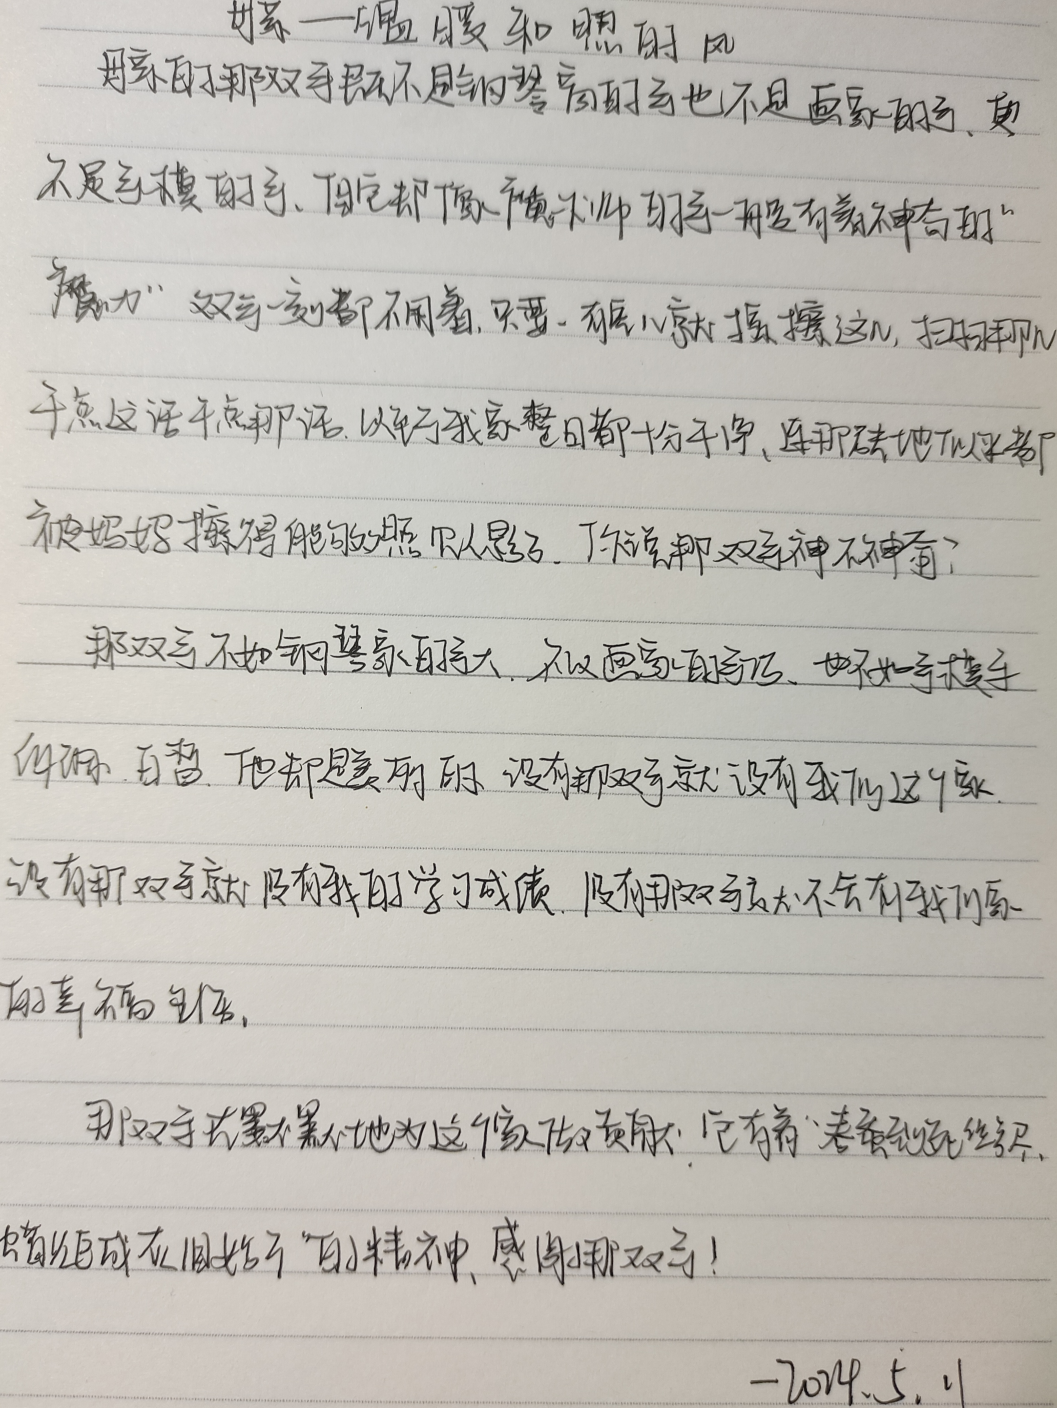 妈妈——温暖和照的风
母亲的那双手既不是钢琴家的手也不是画家的手、更
不是手模的手、但它却像魔术师的手一般有着神奇的“
魔力”双手一刻都不闲着,只要一有空儿就擦擦这儿,扫扫那儿
干点这活干点那活.以至于我家整日都十分干净、连那砖地似乎都
被妈妈擦得能够照见人影了.你说那双手神不神奇?
那双手不如钢琴家的手大.不如画家的手巧、也不如手模手
纤细.白皙.但却是美丽的 没有那双手就没有我们这个家.
没有那双手就没有我的学习成绩.没有那双手就不会有我们家
的幸福生活.
那双手夫默默地为这个家做贡献.它有着“春蚕到死丝方尽.
蜡炬成灰泪始干”的精神、感谢那双手!
—2024.5.11